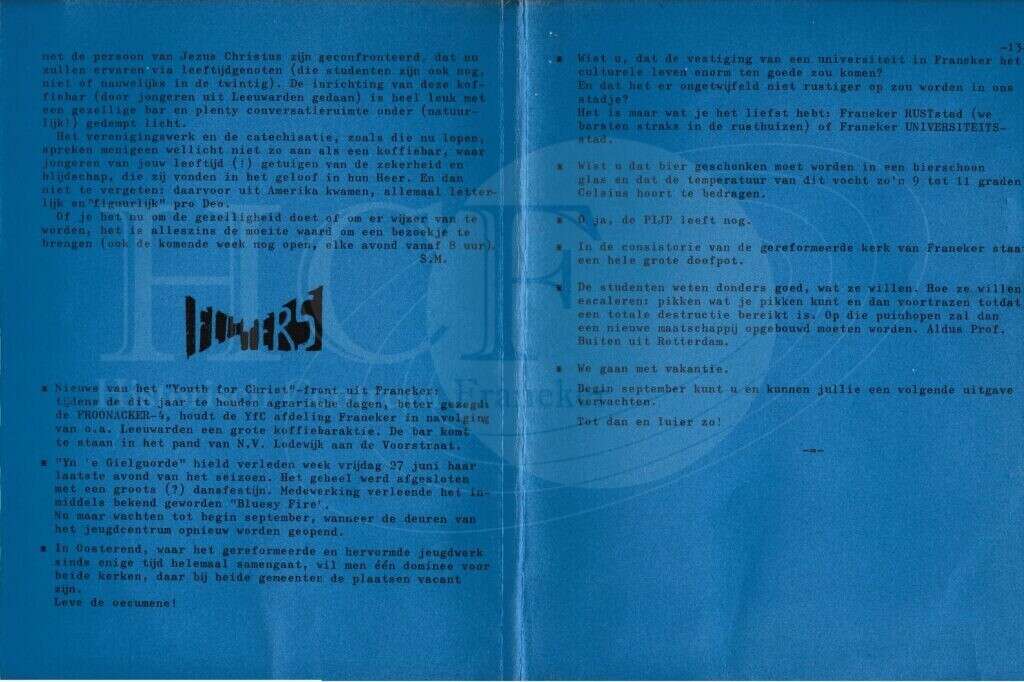 met de persoon van Jezus Christus zijn geconfronteerd, dat nu
zullen ervaren via leeftijdgenoten (die studenten zijn ook nog
niet of nauwelijks in de twintig). De inrichting van deze kof-
fiebar (door jongeren uit Leeuwarden gedaan) is heel leuk met
een gezellige bar en plenty conversatieruimte onder (natuur-
lijk!) gedempt licht.
Het verenigingswerk en de catechisatie, zoals die nu lopen,
spreken menigeen wellicht niet zo aan als een koffiebar, waar
jongeren van jouw leeftijd (!) getuigen van de zekerheid en
blijdschap, die zij vonden in het geloof in hun Heer. En dan
niet te vergeten: daarvoor uit Amerika kwamen, allemaal letter-
lijk en"figuurlijk" pro Deo.
Of je het nu om de gezelligheid doet of om er wijzer van te
worden, het is alleszins de moeite waard om een bezoekje te
brengen (ook de komende week nog open, elke avond vanaf 8 uur).
S.M.
FLOWERS
* Nieuws van het "Youth for Christ"-front uit Franeker:
tijdens de dit jaar te houden agrarische dagen, beter gezegd
de FROONACKER-4, houdt de YfC afdeling Franeker in navolging
van o.a. Leeuwarden een grote koffiebaraktie. De bar komt
te staan in het pand van N.V. Lodewijk aan de Voorstraat.
* "Yn 'e Gielguorde" hield verleden week vrijdag 27 juni haar
laatste avond van het seizoen. Het geheel werd afgesloten
met een groots (?) dansfestijn. Medewerking verleende het in-
middels bekend geworden "Bluesy Fire".
Nu maar wachten tot begin september, wanneer de deuren van
het jeugdcentrum opnieuw worden geopend.
* In Oosterend, waar het gereformeerde en hervormde jeugdwerk
sinds enige tijd helemaal samengaat, wil men één dominee voor
beide kerken, daar bij beide gemeenten de plaatsen vacant
zijn.
Leve de oecumene!
-13
* Wist u, dat de vestiging van een universiteit in Franeker het
culturele leven enorm ten goede zou komen?
En dat het er ongetwijfeld niet rustiger op zou worden in ons
stadje?
Het is maar wat je het liefst hebt: Franeker RUSTstad (we
barsten straks in de rusthuizen) of Franeker UNIVERSITEITS-
stad.
* Wist u dat bier geschonken moet worden in een bierschoon
glas en dat de temperatuur van dit vocht zo'n 9 tot 11 graden
Celsius hoort te bedragen.
* O ja, de PIJP leeft nog.
* In de consistorie van de gereformeerde kerk van Franeker staat
een hele grote doofpot.
* De studenten weten donders goed, wat ze willen. Hoe ze willen
escaleren: pikken wat je pikken kunt en dan voortrazen totdat
een totale destructie bereikt is. Op die puinhopen zal dan
een nieuwe maatschappij opgebouwd moeten worden. Aldus Prof.
Buiten uit Rotterdam.
* We gaan met vakantie.
Begin september kunt u en kunnen jullie een volgende uitgave
verwachten.
Tot dan en luier ze!
-=-